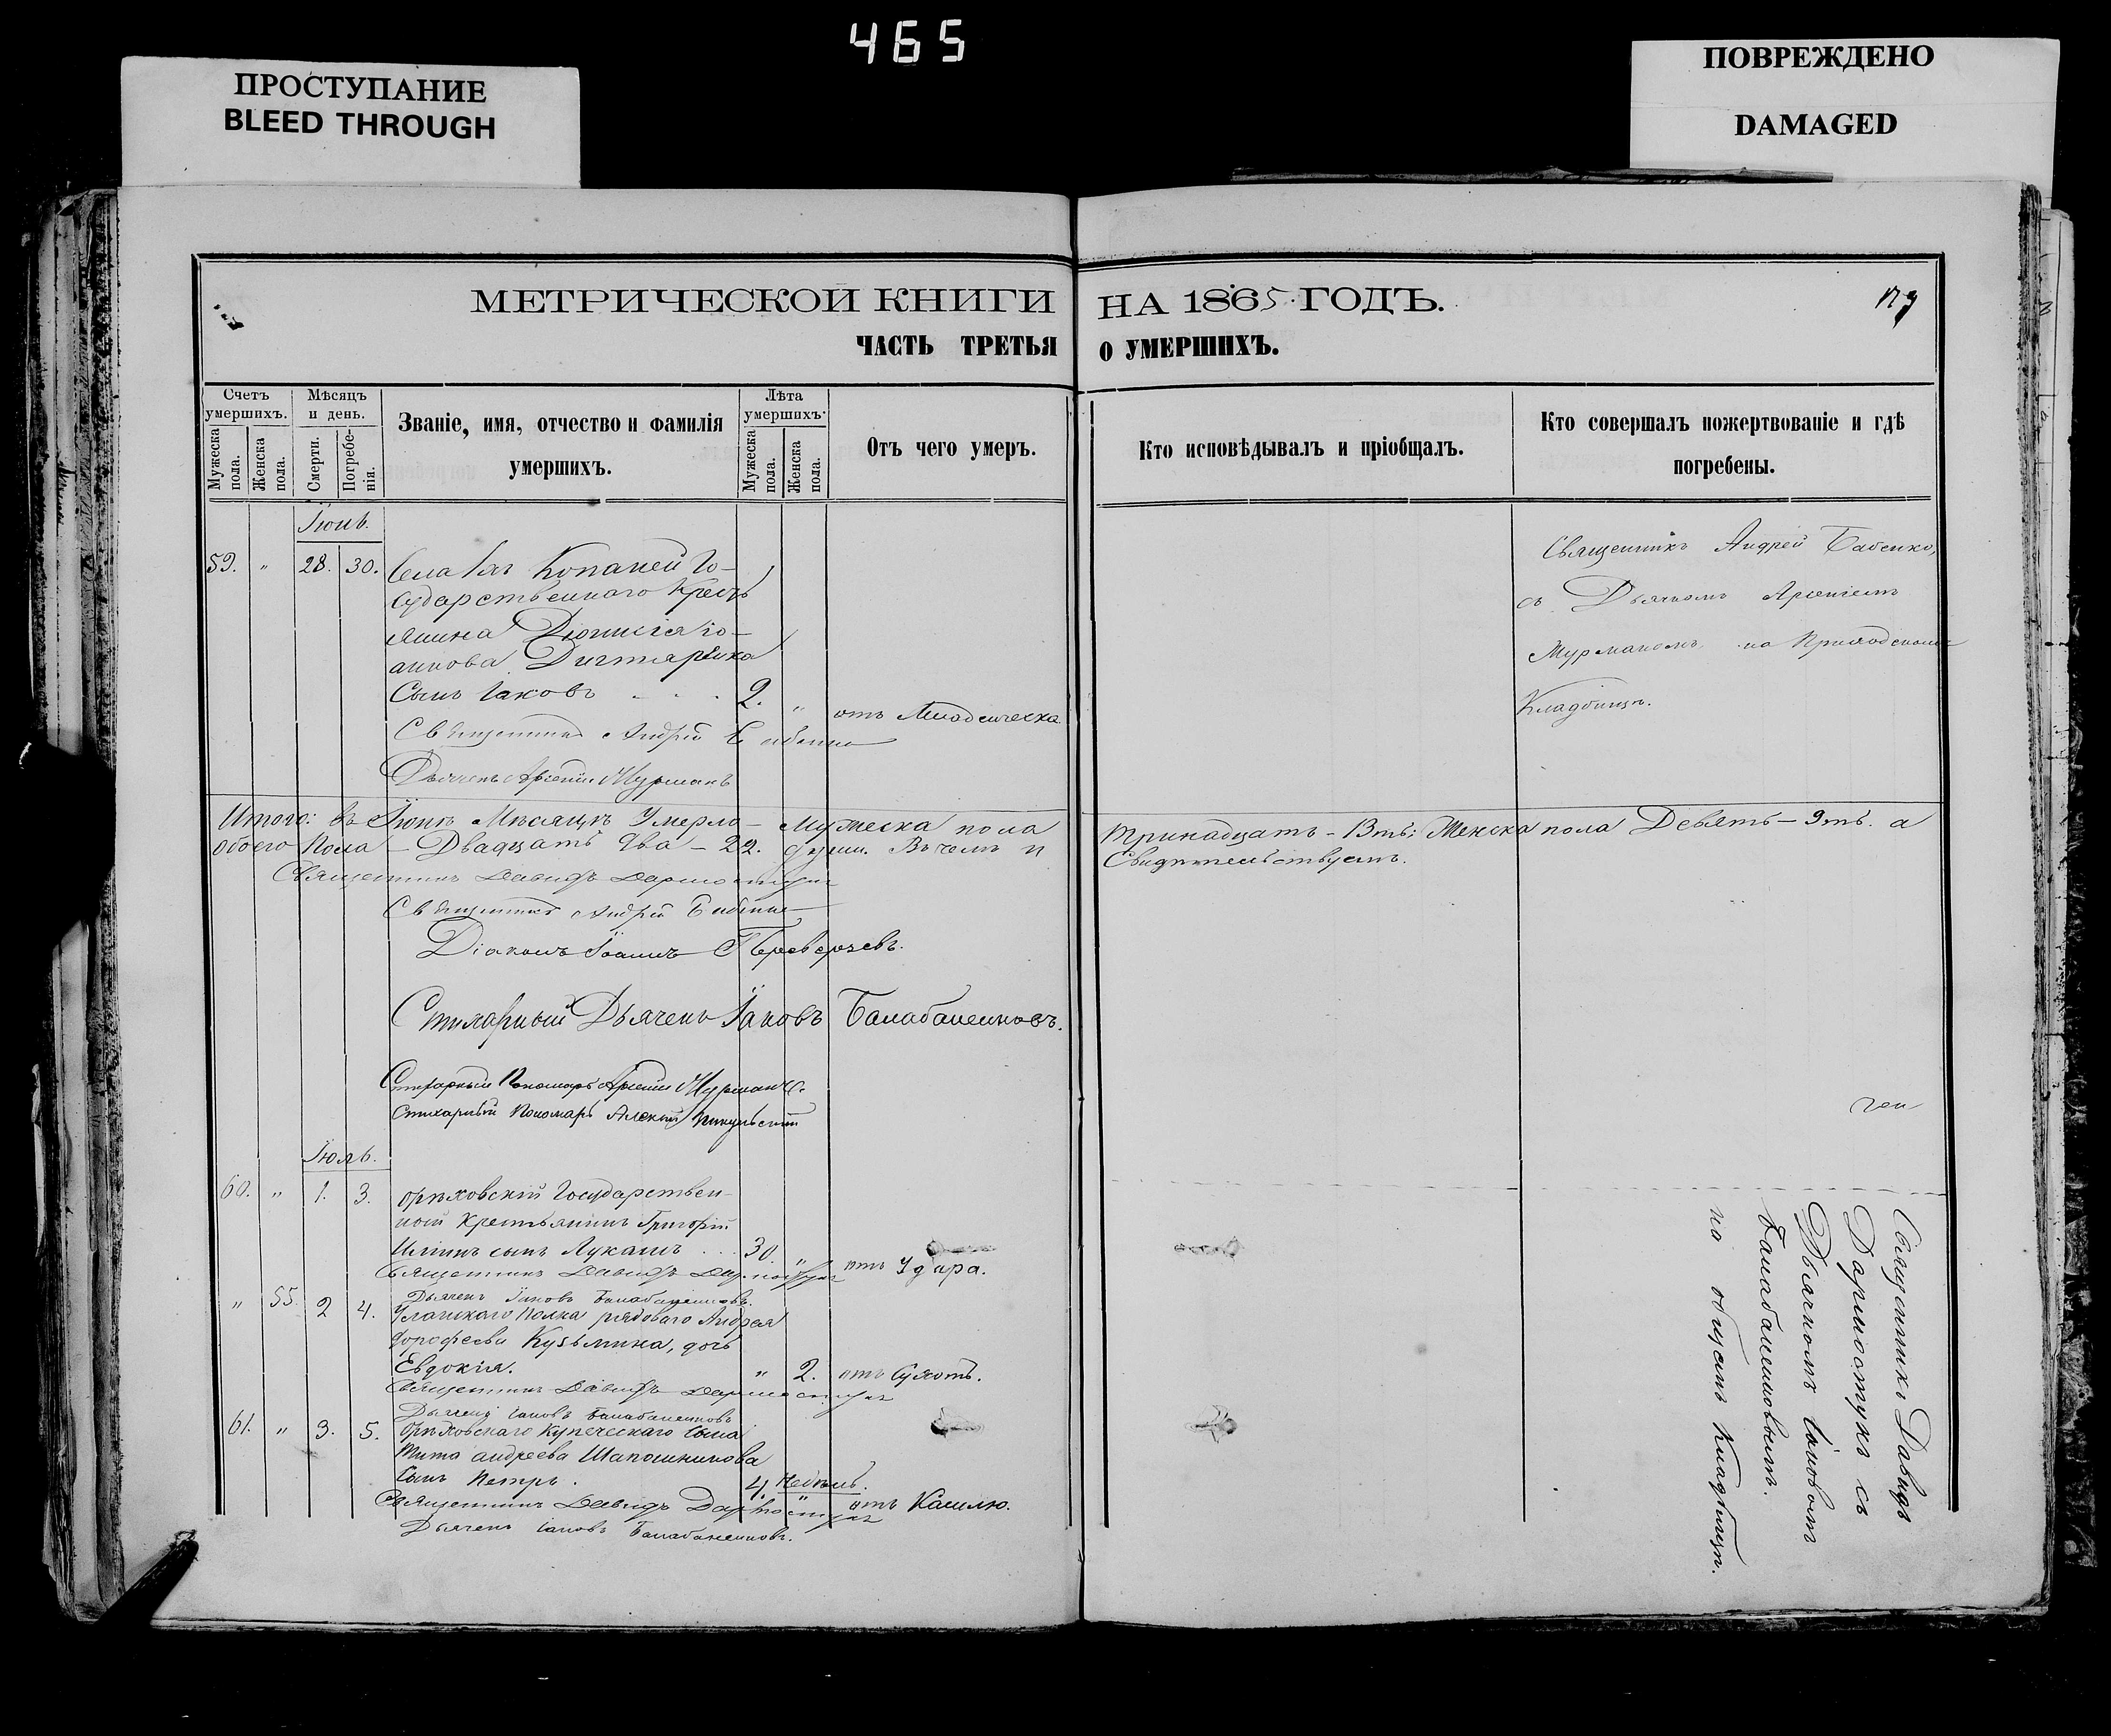 465
ПРОСТУПАНИЕ
BLEED THROUGH
ПОВРЕЖДЕНО
DAMAGED
МЕТРИЧЕСКОЙ КНИГИ НА 1865 ГОДЪ.
ЧАСТЬ ТРЕТЬЯ О УМЕРШИХЪ.
Счетъ умершихъ.
Мужеска пола.
Женска пола.
Мѣсяцъ и день.
Смерти.
Погребенія.
Званіе, имя, отчество и фамилія
умершихъ.
Лѣта умершихъ.
Мужеска пола.
Женска пола.
Отъ чего умеръ.
Кто исповѣдывалъ и пріобщалъ.
Кто совершалъ пожертвованіе и гдѣ
погребены.
Іюнь.
59. " 28. 30. Села Копаней Го-
сударственнаго Кресть
янина Діонисія Іо-
аннова Дигтярика
Сынъ Іаковъ 2. " отъ Младенческа
Священникъ Андрей Бабенко
Дьячекъ Арсеній Мурманъ
Священникъ Андрей Бабенко,
съ Дьячкомъ Арсеніемъ
Мурманомъ на Приходскомъ
Кладбищѣ.
Итого: въ Іюнѣ Мѣсяцѣ Умерло Мужеска пола Тринадцать - 13ть; Женска пола Девять - 9ть. а
обоего Пола - Двадцать два - 22. души. Въ чемъ и Свидѣтельствуемъ.
Священникъ Давидъ Дармостукъ
Священникъ Андрей Бабенко
Діаконъ Іоаннъ Переверзевъ.
Стихарный Дьячекъ Іаковъ Балабаненковъ.
Стихарный Пономарь Арсеній Мурманъ.
Стихарный Пономарь Алексій
Іюль.
60. " 1. 3. Орѣховскій Государствен-
ный крестьянинъ Григорій
Иліинъ сынъ Лукашъ 30. " отъ Удара.
Священникъ Давидъ Дармостукъ
Дьячекъ Іаковъ Балабаненковъ.
" 55. 2 4. Уланскаго Полка рядоваго Андрея
Кузьмина, дочь
Евдокія. " 2. отъ Сухотъ.
Священникъ Давидъ Дармостукъ
Дьячекъ Іаковъ Балабаненковъ
61. " 3. 5. Орѣховскаго Купеческаго сына
Тита андреева Шапошникова
сынъ Петръ. 4. недѣль. " отъ Кашлю.
Священникъ Давидъ Дармостукъ
Дьячекъ Іаковъ Балабаненковъ.
Священникъ Давидъ
Дармостукъ съ
Дьячкомъ Іаковомъ
Балабаненковымъ.
на общемъ Кладбищѣ.